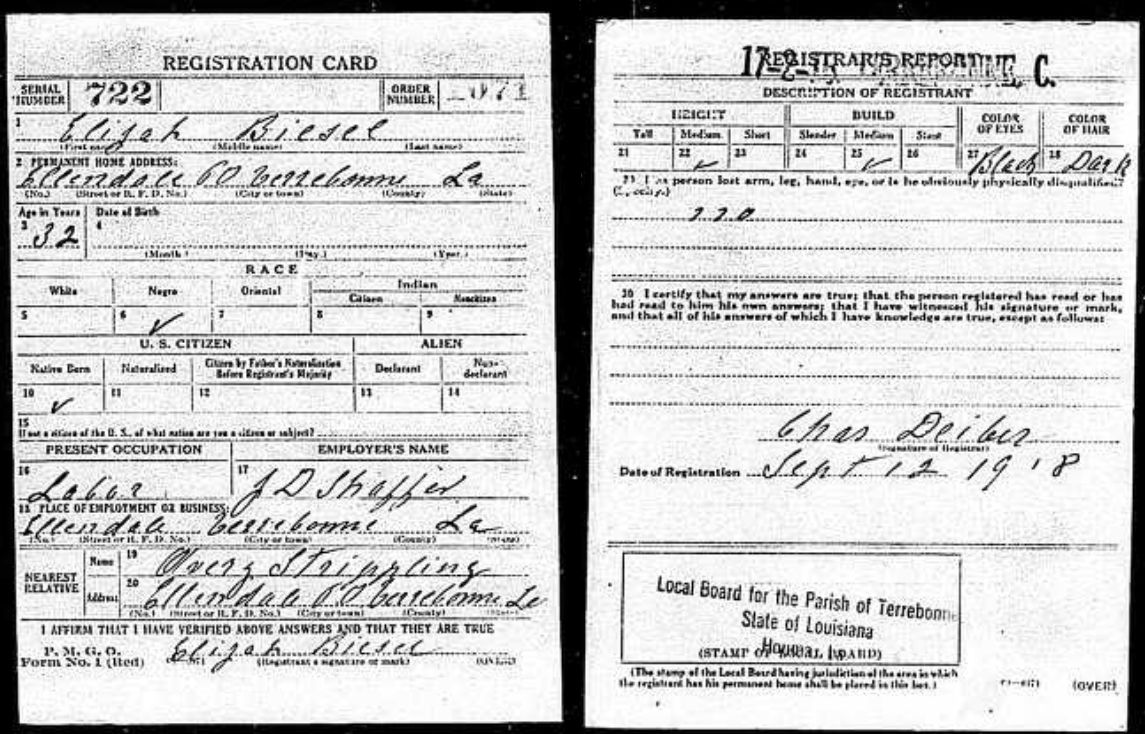 REGISTRATION CARD
SERIAL NUMBER 722 ORDER NUMBER
1 Elijah Biesel
(First name) (Middle name) (Last name)
2 PERMANENT HOME ADDRESS:
Ellendale PO Terrebonne La
(No.) (Street or R. F. D. No.) (City or town) (County) (State)
Age in Years Date of Birth
3 32 4
(Month) (Day.) (Year.)
RACE
White Negro Oriental Indian
Citizen Noncitizen
5 6 ✓ 7 8 9
U. S. CITIZEN ALIEN
Native Born Naturalized Citizen by Father's Naturalization Before Registrant's Majority Declarant Non-declarant
10 ✓ 11 12 13 14
15
If not a citizen of the U. S., of what nation are you a citizen or subject?
PRESENT OCCUPATION EMPLOYER'S NAME
16 Labor 17 J D Shaffer
18 PLACE OF EMPLOYMENT OR BUSINESS:
Ellendale Terrebonne La
(No.) (Street or R. F. D. No.) (City or town) (County) (State)
NEAREST RELATIVE Name 19 Overy Strippling
Address 20 Ellendale PO Terrebonne La
(No.) (Street or R. F. D. No.) (City or town) (County) (State)
I AFFIRM THAT I HAVE VERIFIED ABOVE ANSWERS AND THAT THEY ARE TRUE
P. M. G. O.
Form No. 1 (Red) Elijah Biesel
(Registrant's signature or mark) (OVER)
REGISTRAR'S REPORT
DESCRIPTION OF REGISTRANT
HEIGHT BUILD COLOR OF EYES COLOR OF HAIR
Tall Medium Short Slender Medium Stout
21 22 ✓ 23 24 25 ✓ 26 27 Black 28 Dark
29 Has person lost arm, leg, hand, eye, or is he obviously physically disqualified?
(Specify.)
30 I certify that my answers are true; that the person registered has read or has
had read to him his own answers; that I have witnessed his signature or mark,
and that all of his answers of which I have knowledge are true, except as follows:
Chas Deiber
(Signature of Registrar)
Date of Registration Sept 12 1918
Local Board for the Parish of Terrebonne
State of Louisiana
Houma, La.
(STAMP OF LOCAL BOARD)
(The stamp of the Local Board having jurisdiction of the area in which
the registrant has his permanent home shall be placed in this box.)
(OVER)